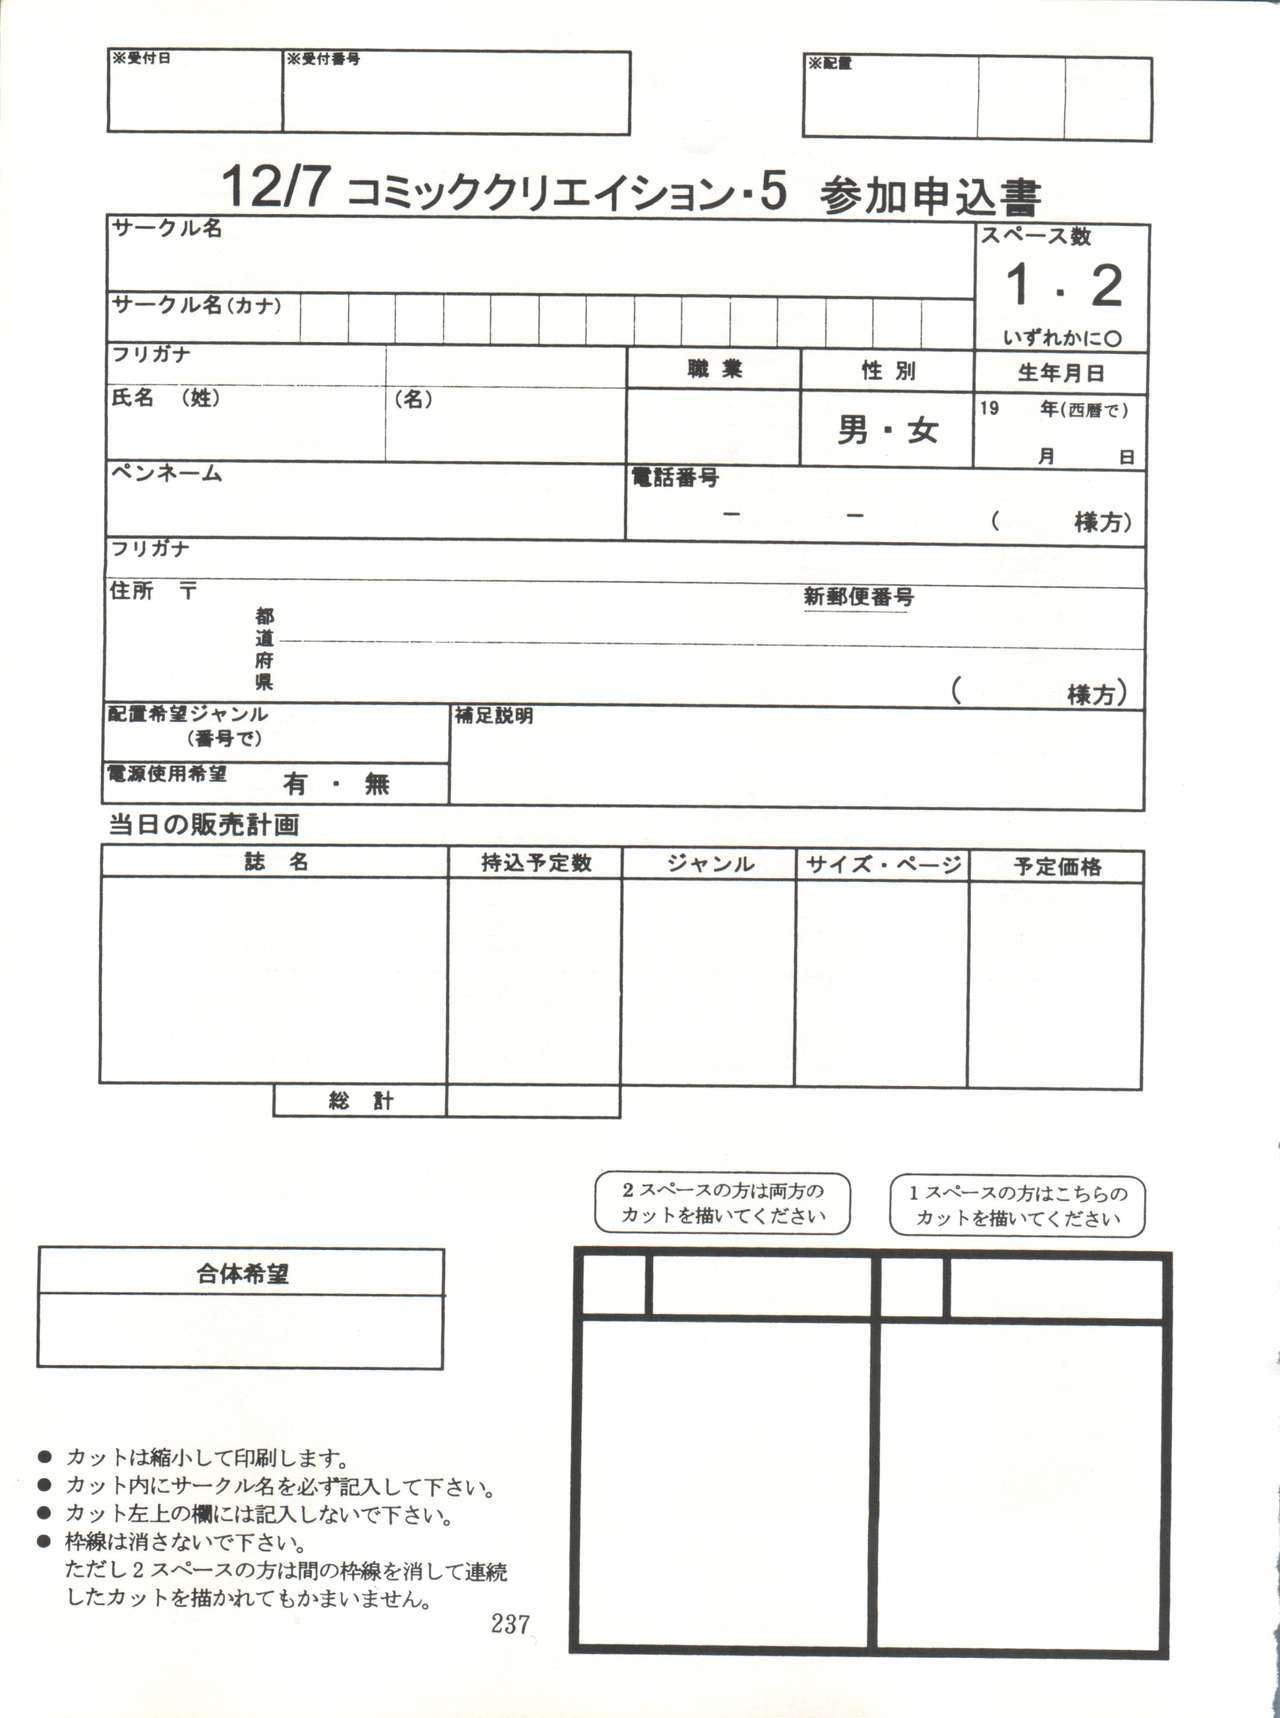 ※受付日 ※受付番号 ※配置
12/7 コミッククリエイション・5 参加申込書
サークル名
スペース数
1・2
いずれかに〇
サークル名(カナ)
フリガナ
職業 性別 生年月日
氏名 (姓) (名)
男・女
19 年(西暦で)
月 日
ペンネーム
電話番号
－ － ( 様方)
フリガナ
住所 〒
新郵便番号
都
道
府
県
( 様方)
配置希望ジャンル
(番号で)
補足説明
電源使用希望 有・無
当日の販売計画
誌名 持込予定数 ジャンル サイズ・ページ 予定価格
総計
2スペースの方は両方の
カットを描いてください
1スペースの方はこちらの
カットを描いてください
合体希望
● カットは縮小して印刷します。
● カット内にサークル名を必ず記入して下さい。
● カット左上の欄には記入しないで下さい。
● 枠線は消さないで下さい。
ただし2スペースの方は間の枠線を消して連続
したカットを描かれてもかまいません。
237